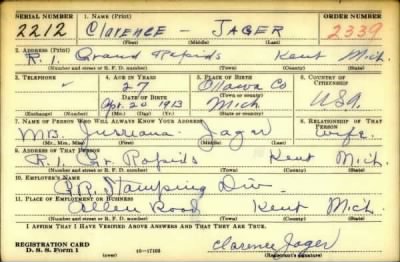 SERIAL NUMBER 1. NAME (Print) ORDER NUMBER
2212 CLARENCE - JAGER 2339
(First) (Middle) (Last)
2. ADDRESS (Print)
R. 1. Grand Rapids Kent Mich.
(Number and street or R. F. D. number) (Town) (County) (State)
3. TELEPHONE 4. AGE IN YEARS 5. PLACE OF BIRTH 6. COUNTRY OF CITIZENSHIP
27 Ottawa Co
DATE OF BIRTH (Town or county)
Apr. 20 1913 Mich USA.
(Exchange) (Number) (Mo.) (Day) (Yr.) (State or country)
7. NAME OF PERSON WHO WILL ALWAYS KNOW YOUR ADDRESS 8. RELATIONSHIP OF THAT PERSON
Mrs. Jager Wife.
(Mr., Mrs., Miss) (First) (Middle) (Last)
9. ADDRESS OF THAT PERSON
R. 1. Gr. Rapids Kent Mich.
(Number and street or R. F. D. number) (Town) (County) (State)
10. EMPLOYER'S NAME
G.R. Stamping Div.
11. PLACE OF EMPLOYMENT OR BUSINESS
Allen Road Kent Mich.
(Number and street or R. F. D. number) (Town) (County) (State)
I AFFIRM THAT I HAVE VERIFIED ABOVE ANSWERS AND THAT THEY ARE TRUE.
REGISTRATION CARD
D. S. S. Form 1 (over) Clarence Jager
(Registrant's signature)